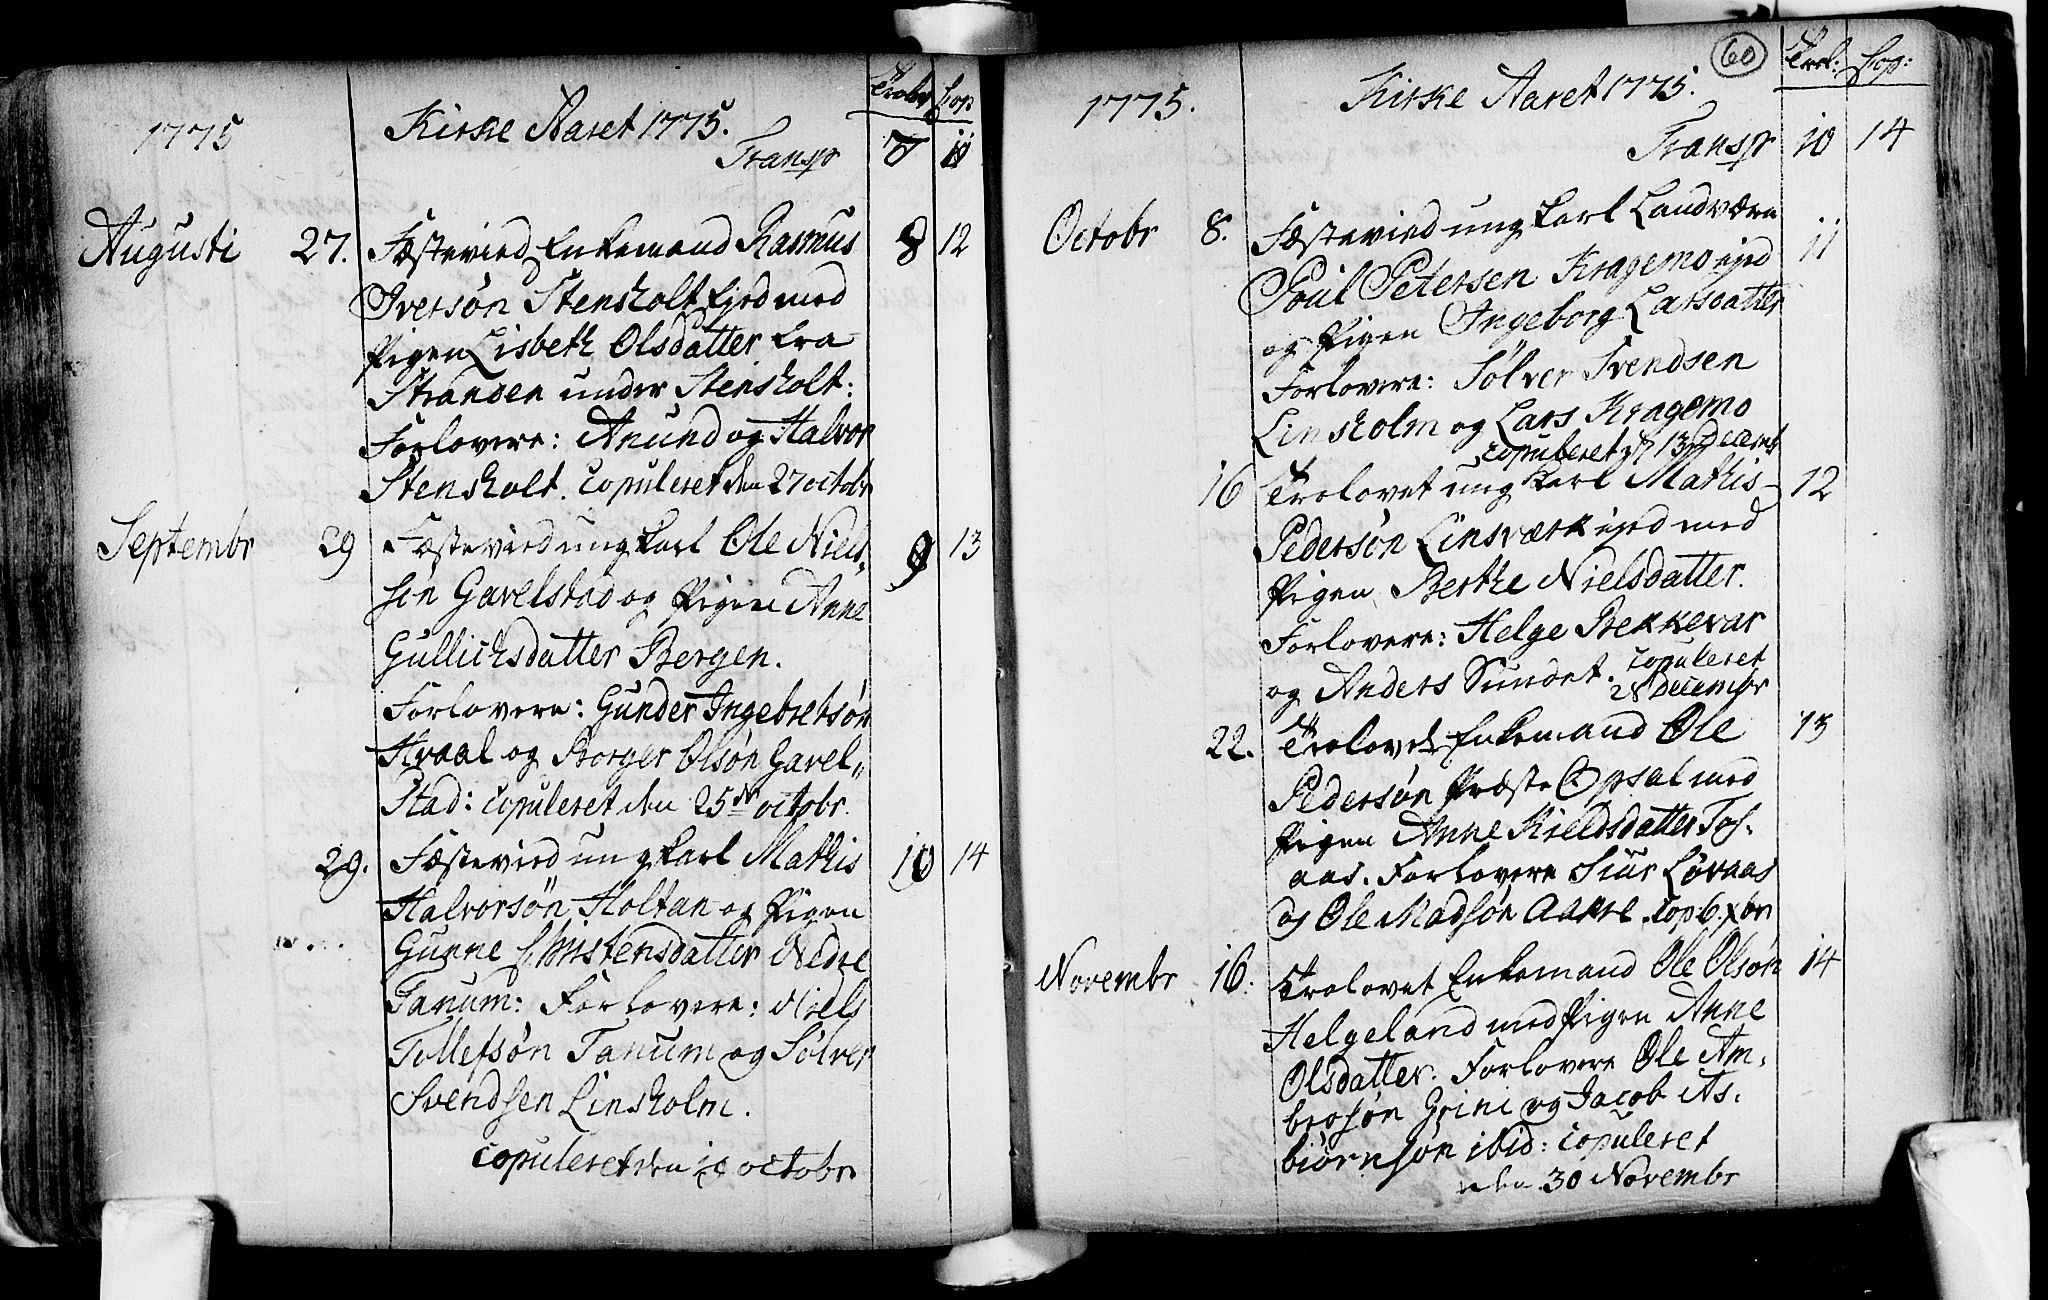 1775
Kirke Aaret 1775.
Trolov Cop
Transp 7 11
Augusti 27. Fæstevied Enkemand Rasmus 8 12
Iversøn Stensholt Eied med
Pigen Lisbeth Olsdatter fra
Stranden under Stensholt:
Forlovere: Anund og Halvor
Stensholt. Copuleret den 27 octobr
Septembr 29 Fæsteviedung karl Ole Niels„ 9 13
sen Gavelstad og Pigen Anne
Gullichsdatter Bergen.
Forlovere: Gunder Ingebretsøn
Hvaal og Borger Olsøn Gavel„
Stad: Copuleret den 25de octobr.
29. Fæsteviedung karl Mathis 10 14
Halvorsøn Holtan og Pigen
Gunne Christensdatter Nedre
Tanum: Forlovere: Niels
Tollefsøn Tanum og Sølver
Svendsen Linsholm.
Copuleret den octobr
60
1775.
Kirke Aaret 1775.
Trol: Cop:
Transp 10 14
Octobr 8. Fæstevied ung karl Landværn 11
Poul Petersen Kragemo eied
og Pigen Ingeborg Larsdatter
Forlovere: Sølver Svendsen
Linsholm og Lars Kragemo
Copuleret 13 Decemb
16 Trolovet ung karl Mathis 12
Pedersøn Linsværk eied med
Pigen Berthe Nielsdatter.
Forlovere: Helge Bekkevar
og Anders Sundet. Copuleret
28 Decembr
22. Trolovet Enkemand Ole 13
Pedersøn Præste Opsal med
Pigen Anne Kieldsdatter Tos-
aas. Forlovere Siur Løvaas
og Ole Madsøn Aakre. Cop: 6. xbr
Novembr 16. Trolovet Enkemand Ole Olsøn 14
Helgeland med Pigen Anne
Olsdatter. Forlovere Ole Am-
brosøn Grini og Jacob As-
biørnsøn ibid: Copuleret
den 30 Novembr